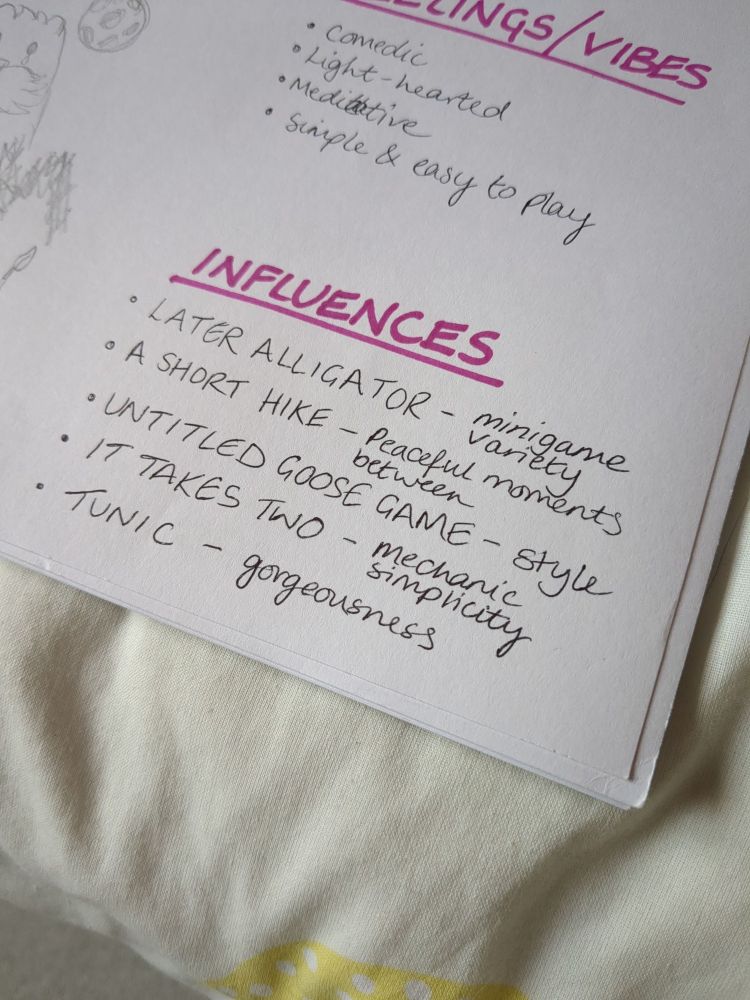 FEELINGS/VIBES
• Comedic
• Light-hearted
• Meditative
• Simple & easy to play
INFLUENCES
• LATER ALLIGATOR – minigame
variety
• A SHORT HIKE – Peaceful moments
between
• UNTITLED GOOSE GAME – style
• IT TAKES TWO – mechanic
simplicity
• TUNIC – gorgeousness